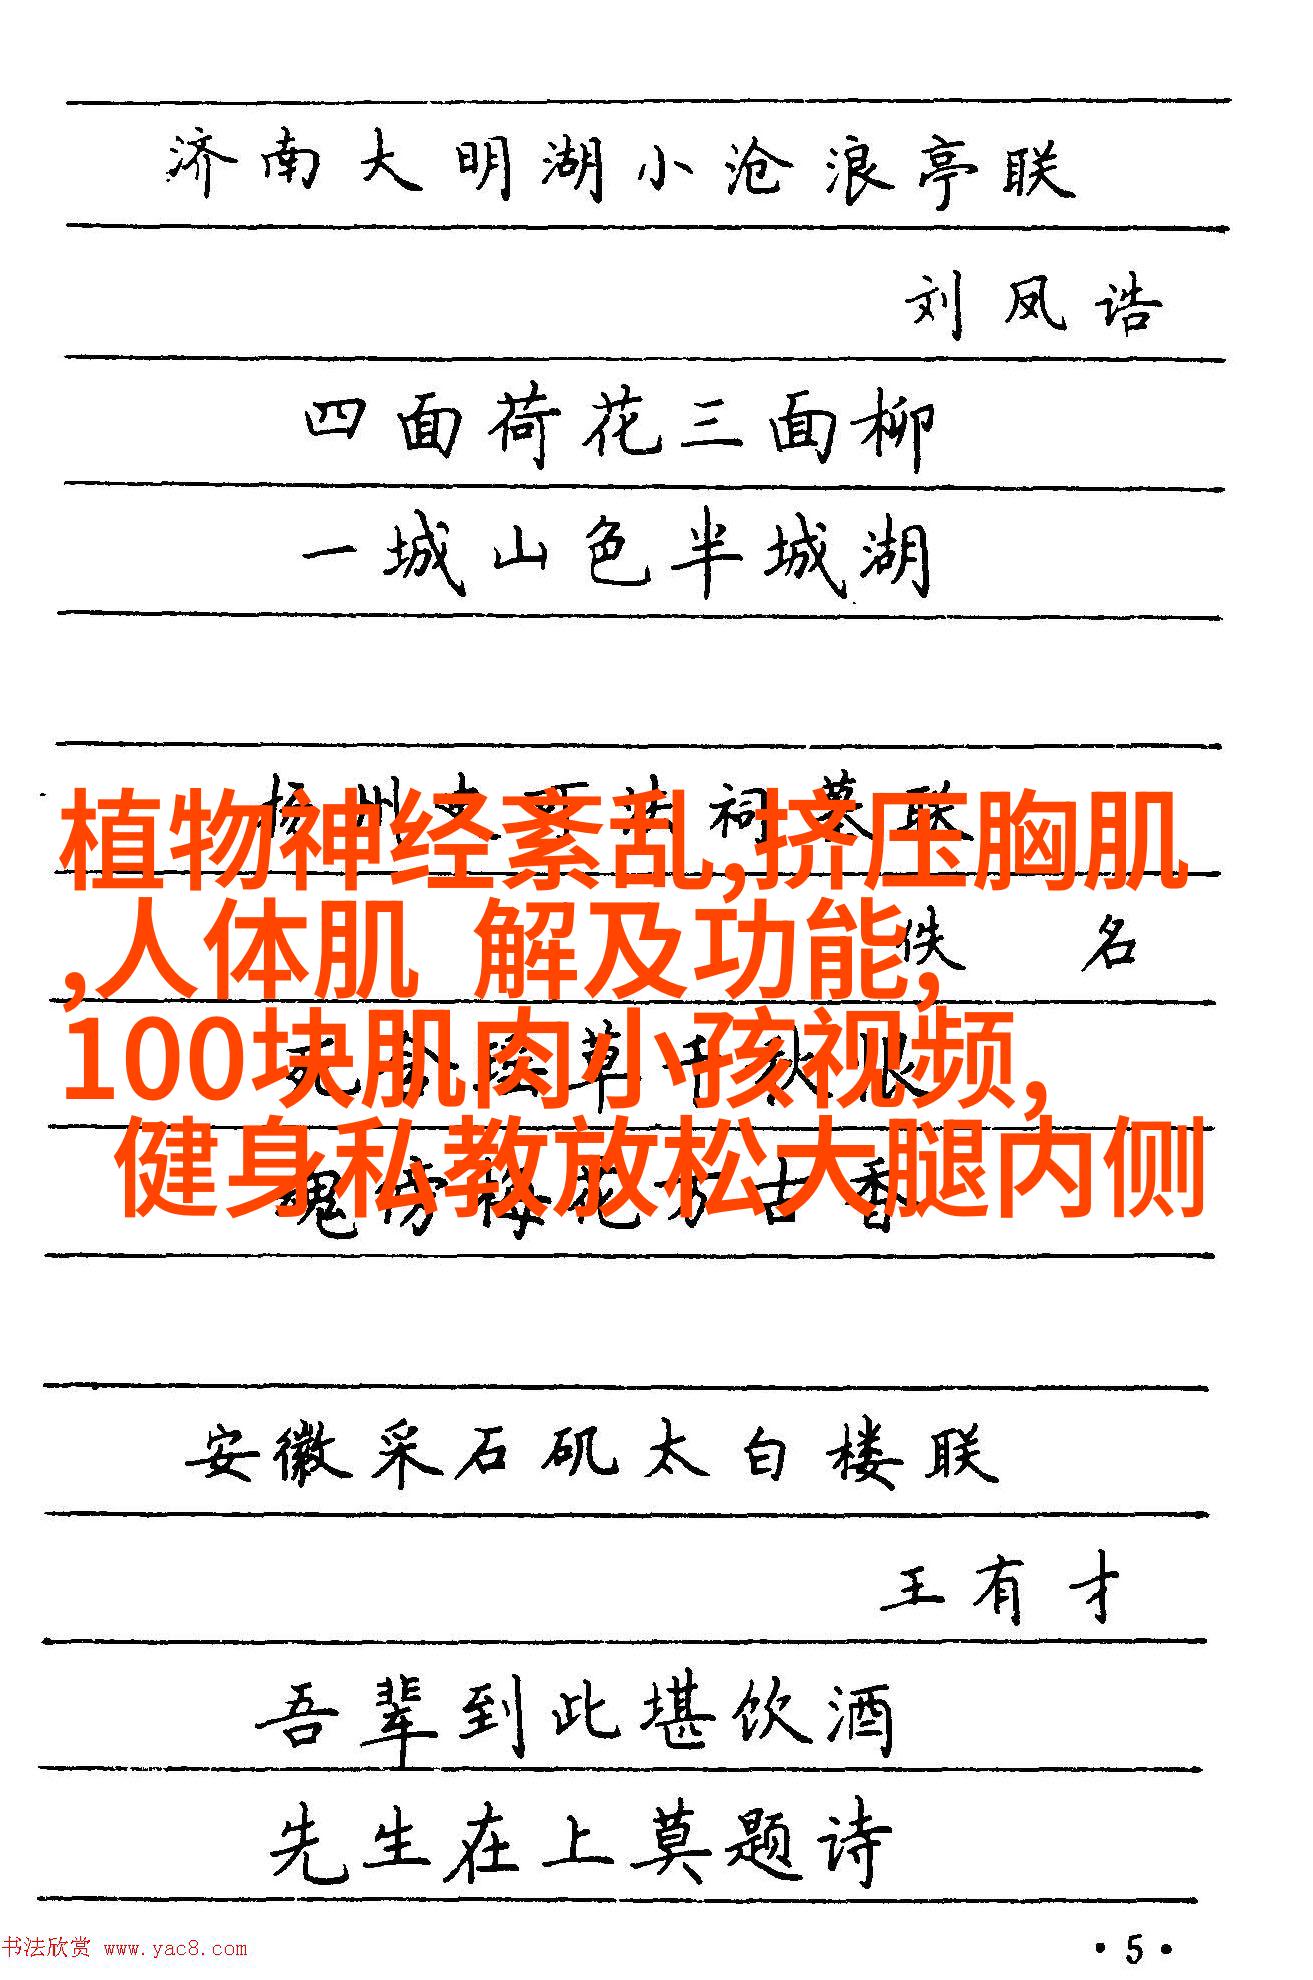 济南大明湖小沧浪亭联
刘凤诰
四面荷花三面柳
一城山色半城湖
扬州史可法祠墓联
植物神经紊乱,挤压胸肌
佚 名
,人体肌 解及功能,
草千秋恨
100块肌肉小孩视频,
健身私教放松大腿内侧
魂傍梅花万古香
安徽采石矶太白楼联
王有才
吾辈到此堪饮酒
先生在上莫题诗
书法欣赏 www.yac8.com
·5·